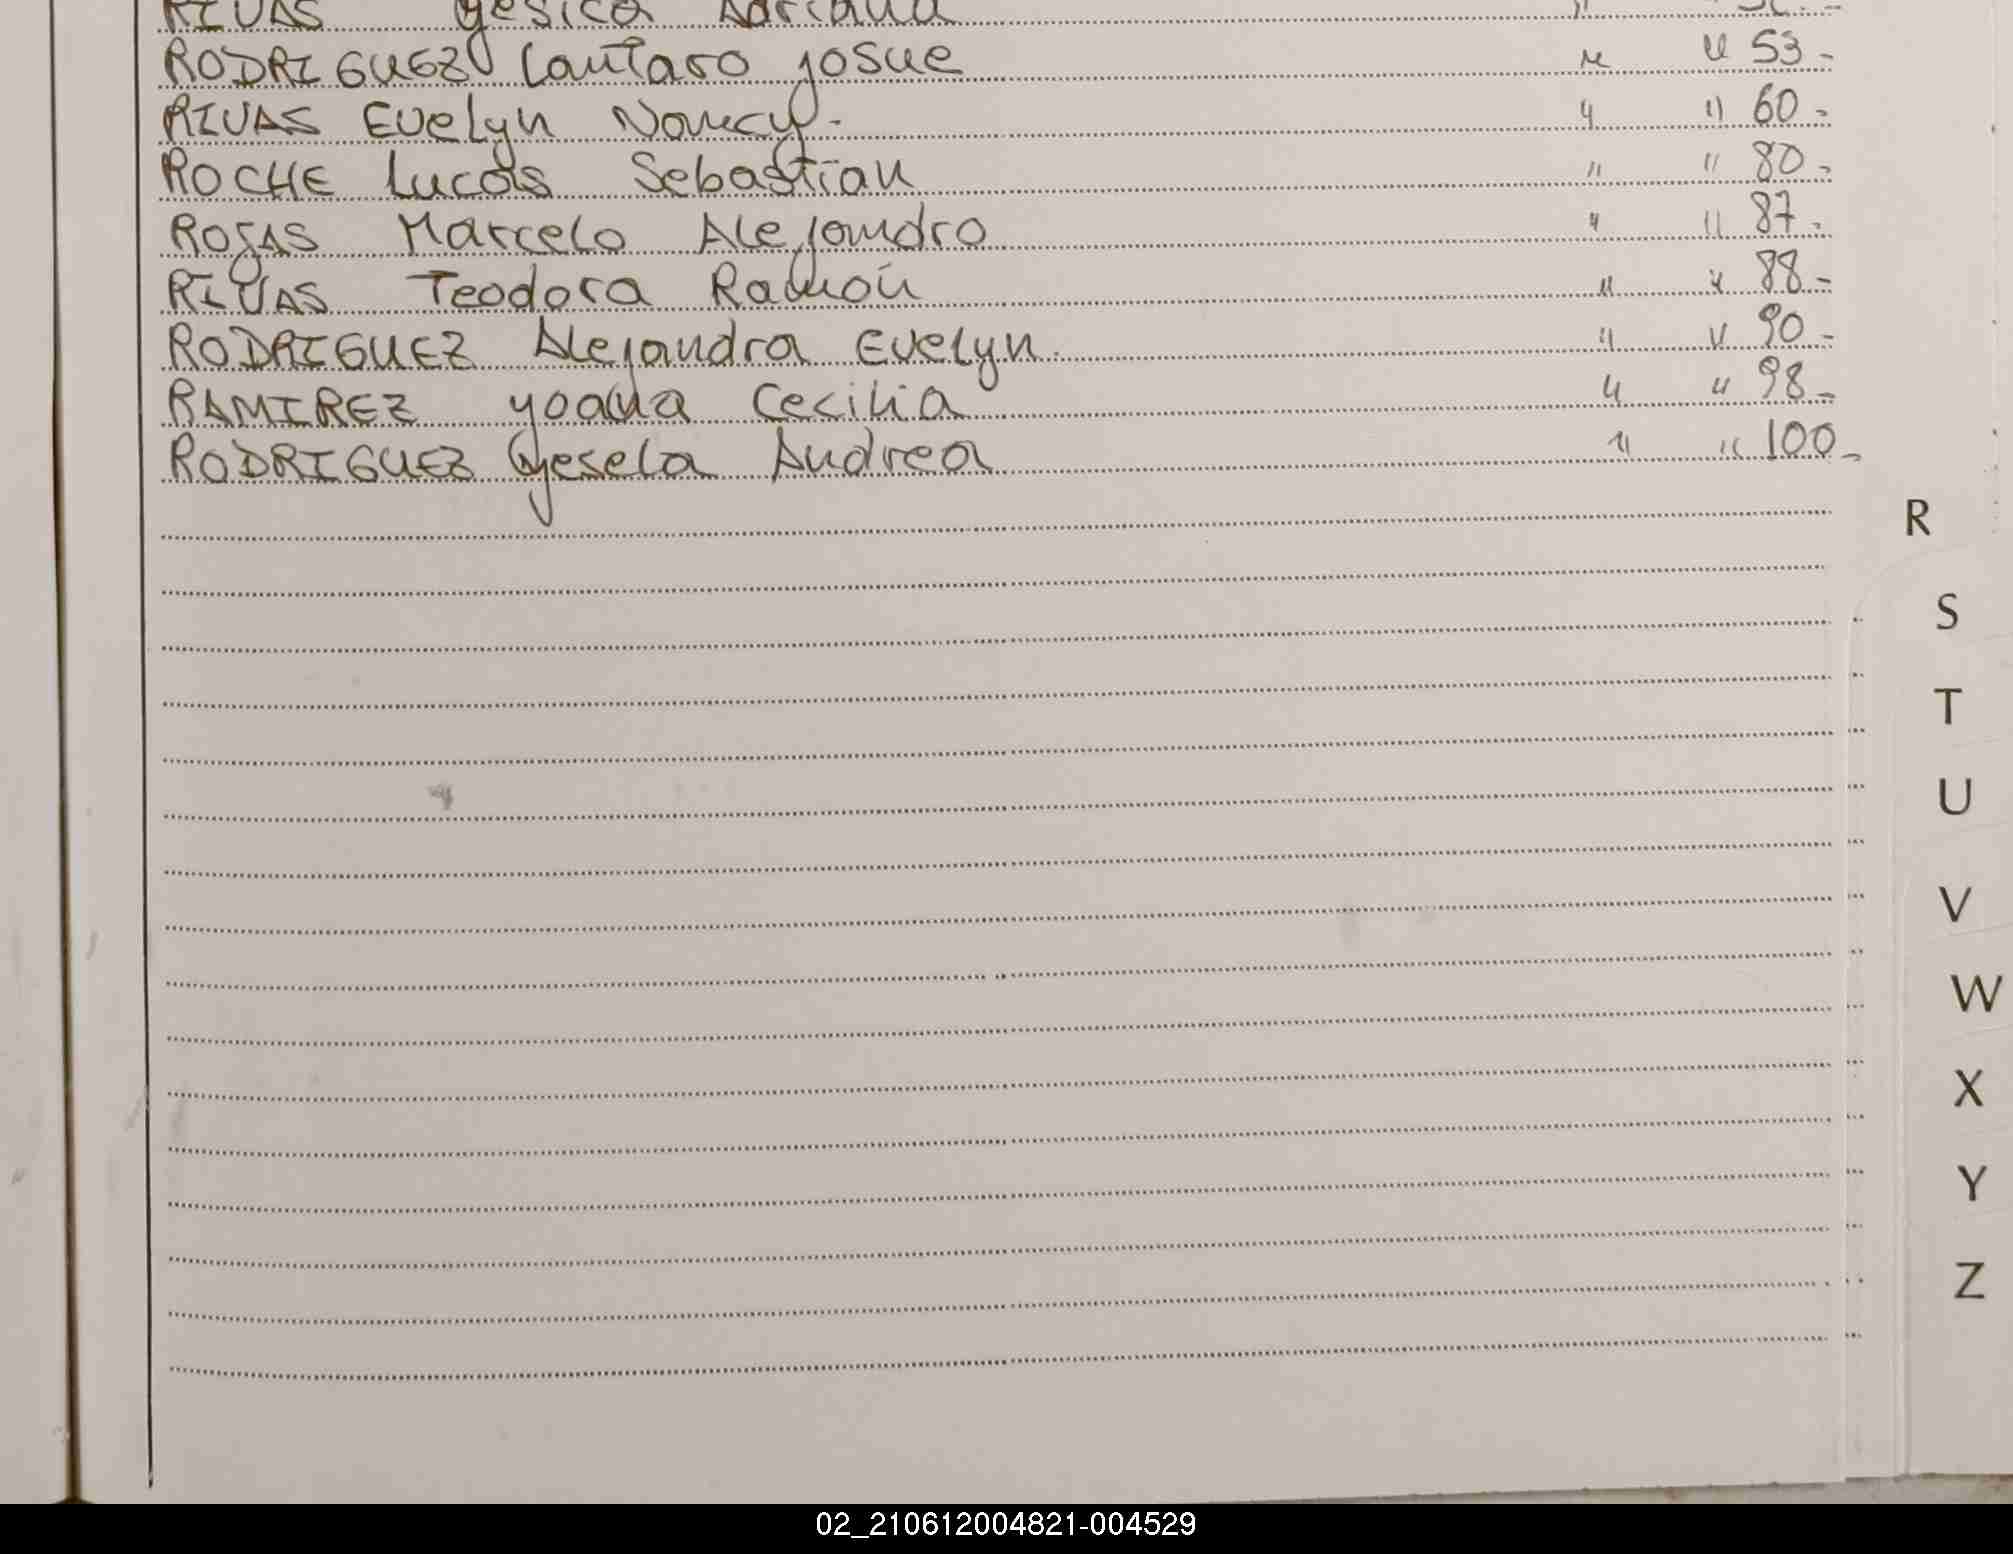 RIVAS Yesica Adriana
RODRIGUEZ Lautaro Josue " " 53-
RIVAS Evelyn Nancy- " " 60-
ROCHE Lucas Sebastian " " 80-
ROJAS Marcelo Alejandro " " 87-
RIVAS Teodora Ramón " " 88-
RODRIGUEZ Alejandra Evelyn. " " 90-
RAMIREZ Yoana Cecilia " " 98-
RODRIGUEZ Gesela Andrea " " 100-
R
S
T
U
V
W
X
Y
Z
02_210612004821-004529